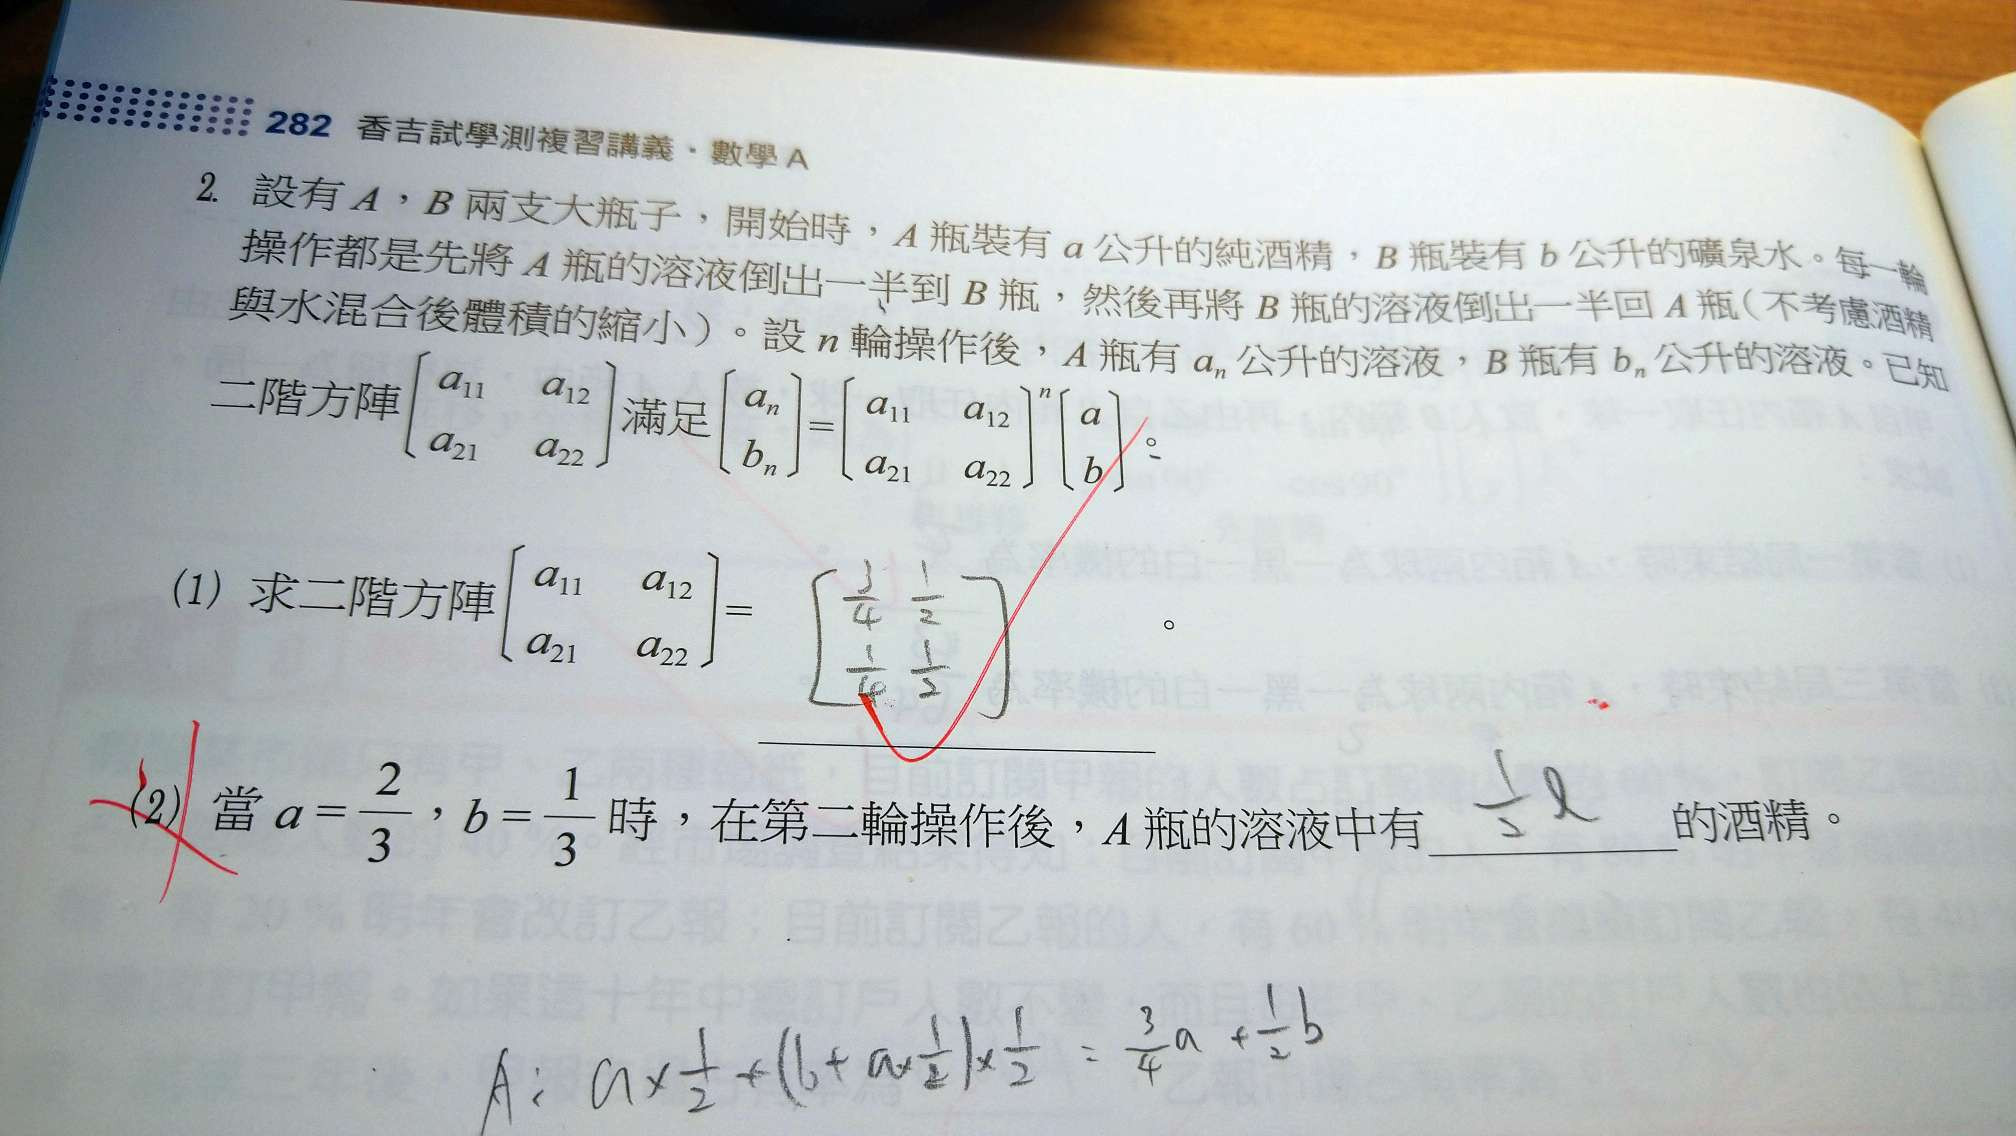 282 香吉試學測複習講義・數學 A
2. 設有 A，B 兩支大瓶子，開始時，A 瓶裝有 a 公升的純酒精，B 瓶裝有 b 公升的礦泉水。每一輪
操作都是先將 A 瓶的溶液倒出一半到 B 瓶，然後再將 B 瓶的溶液倒出一半回 A 瓶（不考慮酒精
與水混合後體積的縮小）。設 n 輪操作後，A 瓶有 aₙ 公升的溶液，B 瓶有 bₙ 公升的溶液。已知
二階方陣 [a₁₁ a₁₂; a₂₁ a₂₂] 滿足 [aₙ; bₙ] = [a₁₁ a₁₂; a₂₁ a₂₂]ⁿ [a; b]。
(1) 求二階方陣 [a₁₁ a₁₂; a₂₁ a₂₂] = [3/4 1/2; 1/4 1/2]。
(2) 當 a = 2/3，b = 1/3 時，在第二輪操作後，A 瓶的溶液中有 1/2 l 的酒精。
A: a×1/2 + (b + a×1/2)×1/2 = 3/4 a + 1/2 b